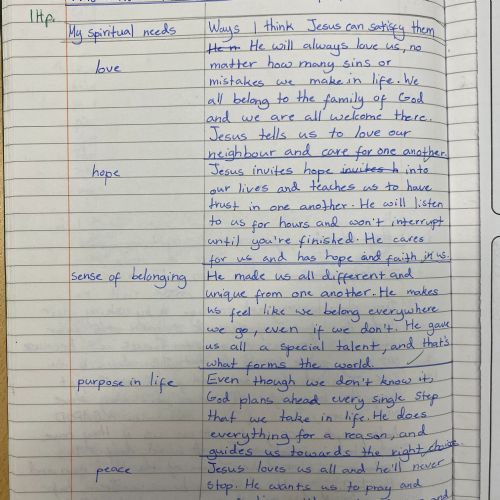 1Hp.
My spiritual needs | Ways I think Jesus can satisfy them
He n. He will always love us, no
love | matter how many sins or
mistakes we make in life. We
all belong to the family of God
and we are all welcome there.
Jesus tells us to love our
neighbour and care for one another.
hope | Jesus invites hope invites h into
our lives and teaches us to have
trust in one another. He will listen
to us for hours and won't interrupt
until you're finished. He cares
for us and has hope and faith in us.
sense of belonging | He made us all different and
unique from one another. He makes
us feel like we belong everywhere
we go, even if we don't. He gave
us all a special talent, and that's
what forms the world.
purpose in life | Even though we don't know it,
God plans ahead every single step
that we take in life. He does
everything for a reason, and
guides us towards the right choice.
peace | Jesus loves us all and he'll never
stop. He wants us to pray and
and